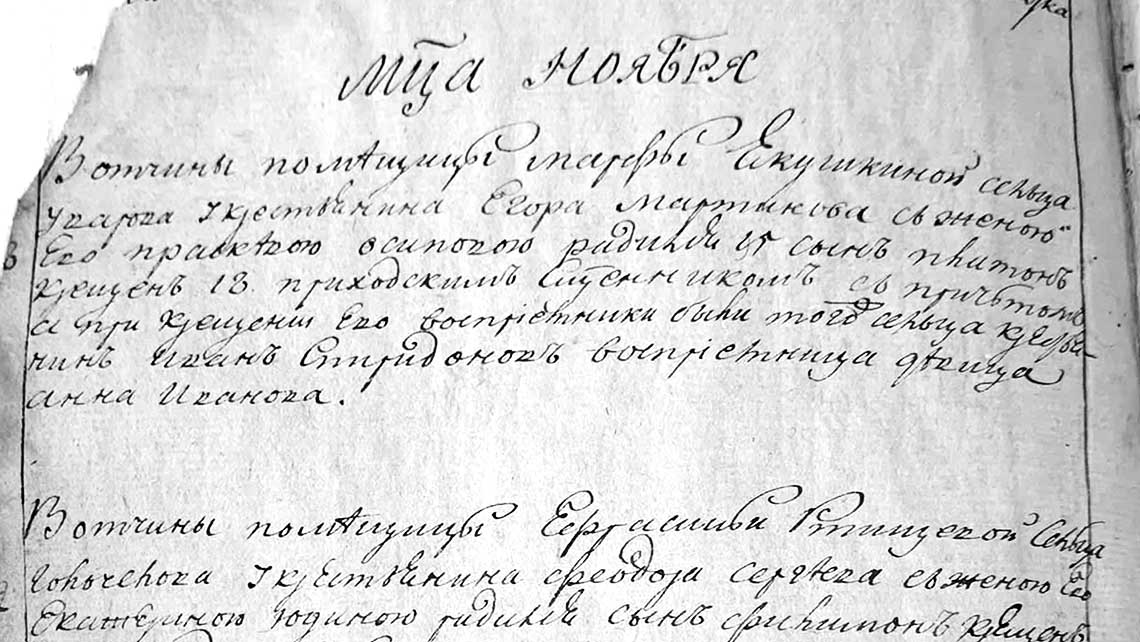 Мца Ноября
Вотчины помѣщицы марфы Екушкиной сельца
Уварова у крестьянина Егора Мартинова сь женою
Его праскевою осиповою радился 15 сынъ плитонъ
крещенъ 18 приходскимъ Сщенникомъ съ причьтомъ
а при крещении Его воспрiемники были того сельца крестья
нинъ Иванъ Спиридоновъ воспрiемница дѣвица
анна Иванова.
Вотчины помѣщицы Евфгасиньи Ртищевой Сельца
у крестьянина феодора Сергѣева сь женою Его
Екатериною юдиною радился сынъ филипонъ крещенъ